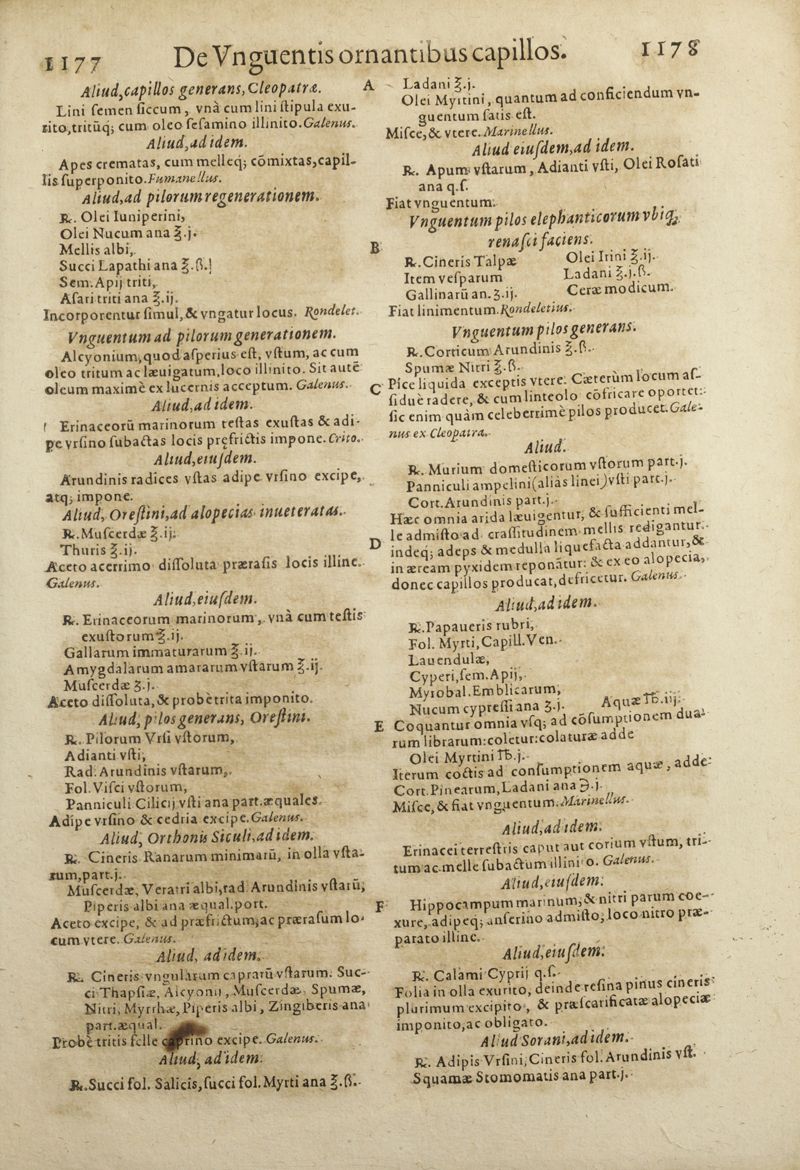 1177
De Vnguentis ornantibus capillos.
1178
Aliud,capillos generans,Cleopatræ.
Lini semen siccum, vnà cum lini stipula exu-
sito,tritūq; cum oleo sesamino illinito.Galenus.
Aliud,ad idem.
Apes crematas, cum melleq; cōmixtas,capil-
lis superponito.Fumanellus.
Aliud,ad pilorum regenerationem.
℞. Olei Iuniperini,
Olei Nucum ana ℥.j.
Mellis albi,
Succi Lapathi ana ℥.ß.
Sem. Apij triti,
Asari triti ana ℥.ij.
Incorporentur simul,& vngatur locus. Rondelet.
Vnguentum ad pilorum generationem.
Alcyonium,quod asperius est, vstum, ac cum
oleo tritum ac læuigatum,loco illinito. Sit autē
oleum maximè ex lucernis acceptum. Galenus.
Aliud,ad idem.
Erinaceorū marinorum testas exustas & adi-
pe vrsino subactas locis pręfrictis impone. Crito.
Aliud,eiusdem.
Arundinis radices vstas adipe vrsino excipe,
atq; impone.
Aliud, Orestini,ad alopecias inueteratas.
℞. Muscerdæ ℥.ij.
Thuris ℥.ij.
Aceto acerrimo dissoluta prærasis locis illine.
Galenus.
Aliud,eiusdem.
℞. Erinaceorum marinorum, vnà cum testis
exustorum ℥.ij.
Gallarum immaturarum ℥.ij.
Amygdalarum amararum vstarum ℥.ij.
Muscerdæ ʒ.j.
Aceto dissoluta,& probè trita imponito.
Aliud, pilos generans, Orestini.
℞. Pilorum Vrsi vstorum,
Adianti vsti,
Rad. Arundinis vstarum,
Fol. Visci vstorum,
Panniculi Cilicij vsti ana part.æquales.
Adipe vrsino & cedria excipe.Galenus.
Aliud, Orthonis Siculi,ad idem.
℞. Cineris Ranarum minimarū, in olla vsta-
rum,part.j.
Muscerdæ, Veratri albi,rad Arundinis vstarū,
Piperis albi ana æqual.port.
Aceto excipe, & ad præfrictum,ac prærasum lo-
cum vtere. Galenus.
Aliud, ad idem.
℞. Cineris vngularum caprarū vstarum. Suc-
ci Thapsiæ, Alcyonii, Muscerdæ, Spumæ,
Nitri, Myrrhæ, Piperis albi, Zingiberis ana
part.æqual.
Probè tritis felle caprino excipe. Galenus.
Aliud, ad idem.
℞.Succi fol. Salicis,succi fol.Myrti ana ℥.ß.
A
Ladani ℥.j.
Olei Myrtini, quantum ad conficiendum vn-
guentum satis est.
Misce,& vtere.Marinellus.
Aliud eiusdem,ad idem.
℞. Apum vstarum, Adianti vsti, Olei Rosati
ana q.s.
Fiat vnguentum.
Vnguentum pilos elephanticorum vbiq;
renasci faciens.
B
℞.Cineris Talpæ
Item vesparum
Gallinarū an.ʒ.ij.
Olei Irini ℥.ij.
Ladani ℥.j.ß.
Ceræ modicum.
Fiat linimentum.Rondeletius.
Vnguentum pilos generans.
℞.Corticum Arundinis ℥.ß.
Spumæ Nitri ℥.ß.
C
Pice liquida exceptis vtere. Cæterùm locum as-
siduè radere, & cum linteolo cōfricare oportet:
sic enim quàm celeberrimè pilos producet.Gale-
nus ex Cleopatra.
Aliud.
℞. Murium domesticorum vstorum part.j.
Panniculi ampelini(aliàs linei)vsti part.j.
Cort.Arundinis part.j.
Hæc omnia arida læuigentur, & sufficienti mel-
le admisto ad crassitudinem mellis redigantur.
D
indeq; adeps & medulla liquefacta addantur,&
in æream pyxidem reponātur: & ex eo alopecia,
donec capillos producat,defricetur. Galenus.
Aliud,ad idem.
℞.Papaueris rubri,
Fol. Myrti,Capill.Ven.
Lauendulæ,
Cyperi,sem.Apij,
Myrobal.Emblicarum,
Nucum cypressi ana ʒ.j.
Aquæ ℔.iij.
E
Coquantur omnia vsq; ad cōsumptionem dua-
rum librarum:coletur:colaturæ adde
Olei Myrtini ℔.j.
Iterum coctis ad consumptionem aquæ, adde:
Cort.Pinearum,Ladani ana ℈.j.
Misce,& fiat vnguentum.Marinellus.
Aliud,ad idem.
Erinacei terrestris caput aut corium vstum, tri-
tum ac melle subactum illinito. Galenus.
Aliud,eiusdem.
F
Hippocampum marinum,& nitri parum coe-
xure, adipeq; anserino admisto, loco nitro præ-
parato illine.
Aliud,eiusdem.
℞. Calami Cyprij q.s.
Folia in olla exurito, deinde resina pinus cineris
plurimum excipito, & præscarificatæ alopeciæ
imponito,ac obligato.
Aliud Sorani,ad idem.
℞. Adipis Vrsini,Cineris fol. Arundinis vst.
Squamæ Stomomatis ana part.j.